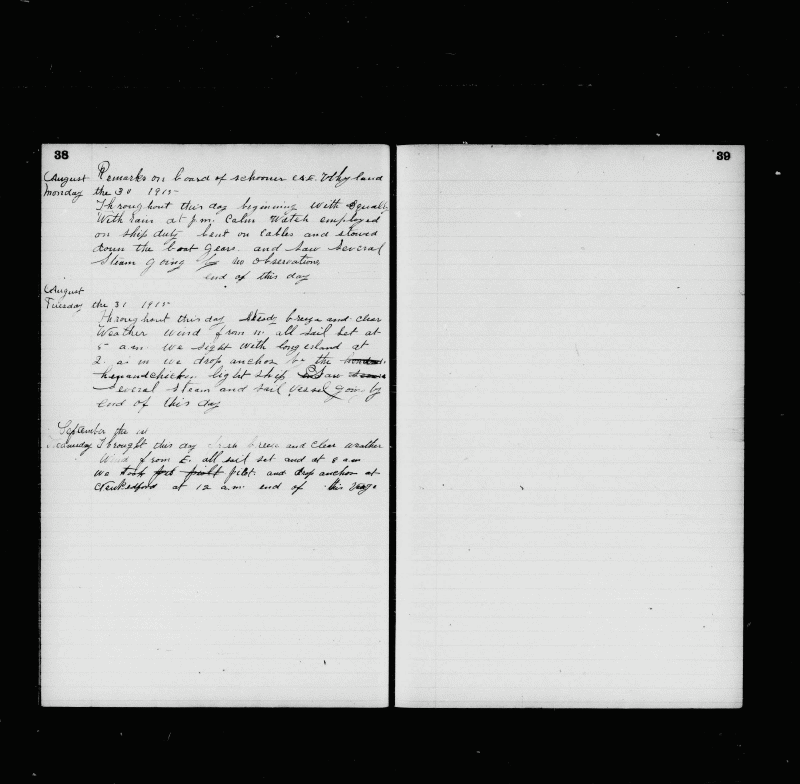 38
39
Remarks on board of schooner A.E. Whyland
August
Monday the 30 1915
Throughout this day beginning With Squally
With rain at p m; Calm Watch employed
on ship duty bent on cables and stowed
down the boat gears. and saw several
Steam going by no observations
end of this day
August
Tuesday the 31 1915
throughout this day steady breeze and clear
Weather Wind from N. all sail set at
5 a m We sight With longesland at
2. a m we drop anchor by the
henandchicken light ship Saw
several steam and sail vessel going by
end of this day
September the
Wednesday Throught this day breeze and clear weather
Wind from E. all sail set and at 8 am
we took pilot. and drop anchor at
at 12 a.m. end of this